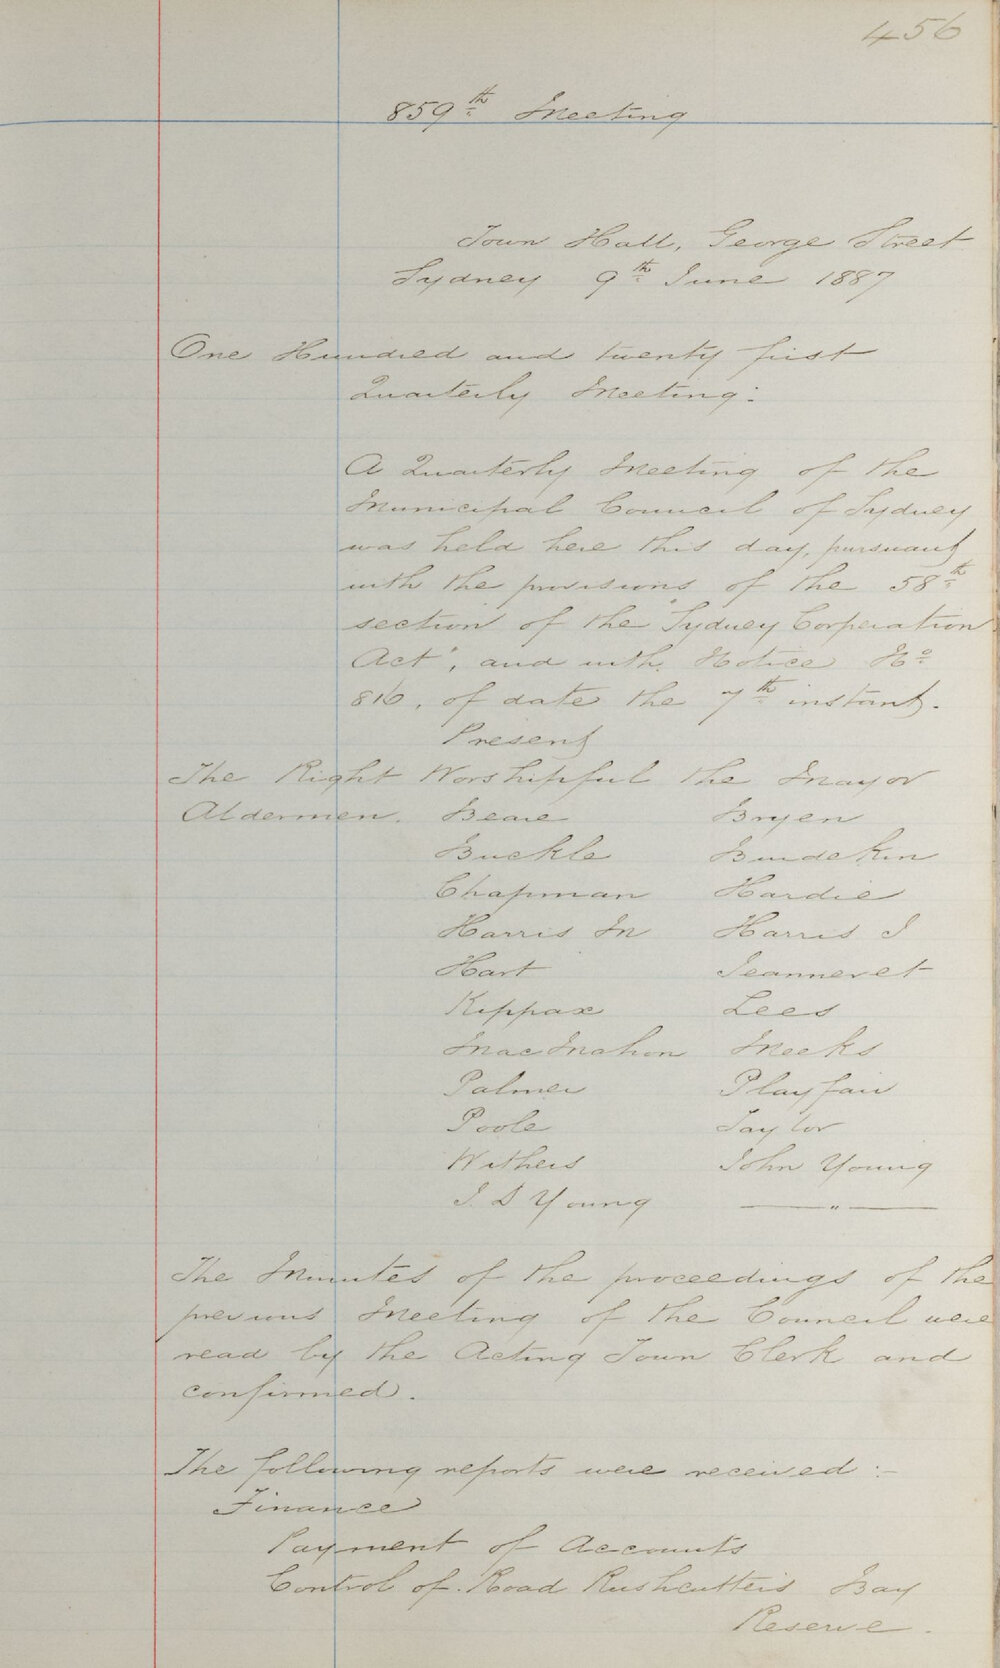 456
859th Meeting
Town Hall, George Street
Sydney 9th June 1887
One Hundred and twenty first
Quarterly Meeting:
A Quarterly Meeting of the
Municipal Council of Sydney
was held here this day, pursuant
with the provisions of the 58th
section of the "Sydney Corporation
Act", and with Notice No
816, of date the 7th instant.
Present
The Right Worshipful the Mayor
Aldermen. Beare Bryen
Buckle Burdekin
Chapman Hardie
Harris M Harris J
Hart Jeanneret
Kippax Lees
MacMahon Meeks
Palmer Playfair
Poole Taylor
Withers John Young
J. D Young — " —
The Minutes of the proceedings of the
previous Meeting of the Council were
read by the Acting Town Clerk and
confirmed.
The following reports were received :-
Finance
Payment of Accounts
Control of Road Rushcutters Bay
Reserve.